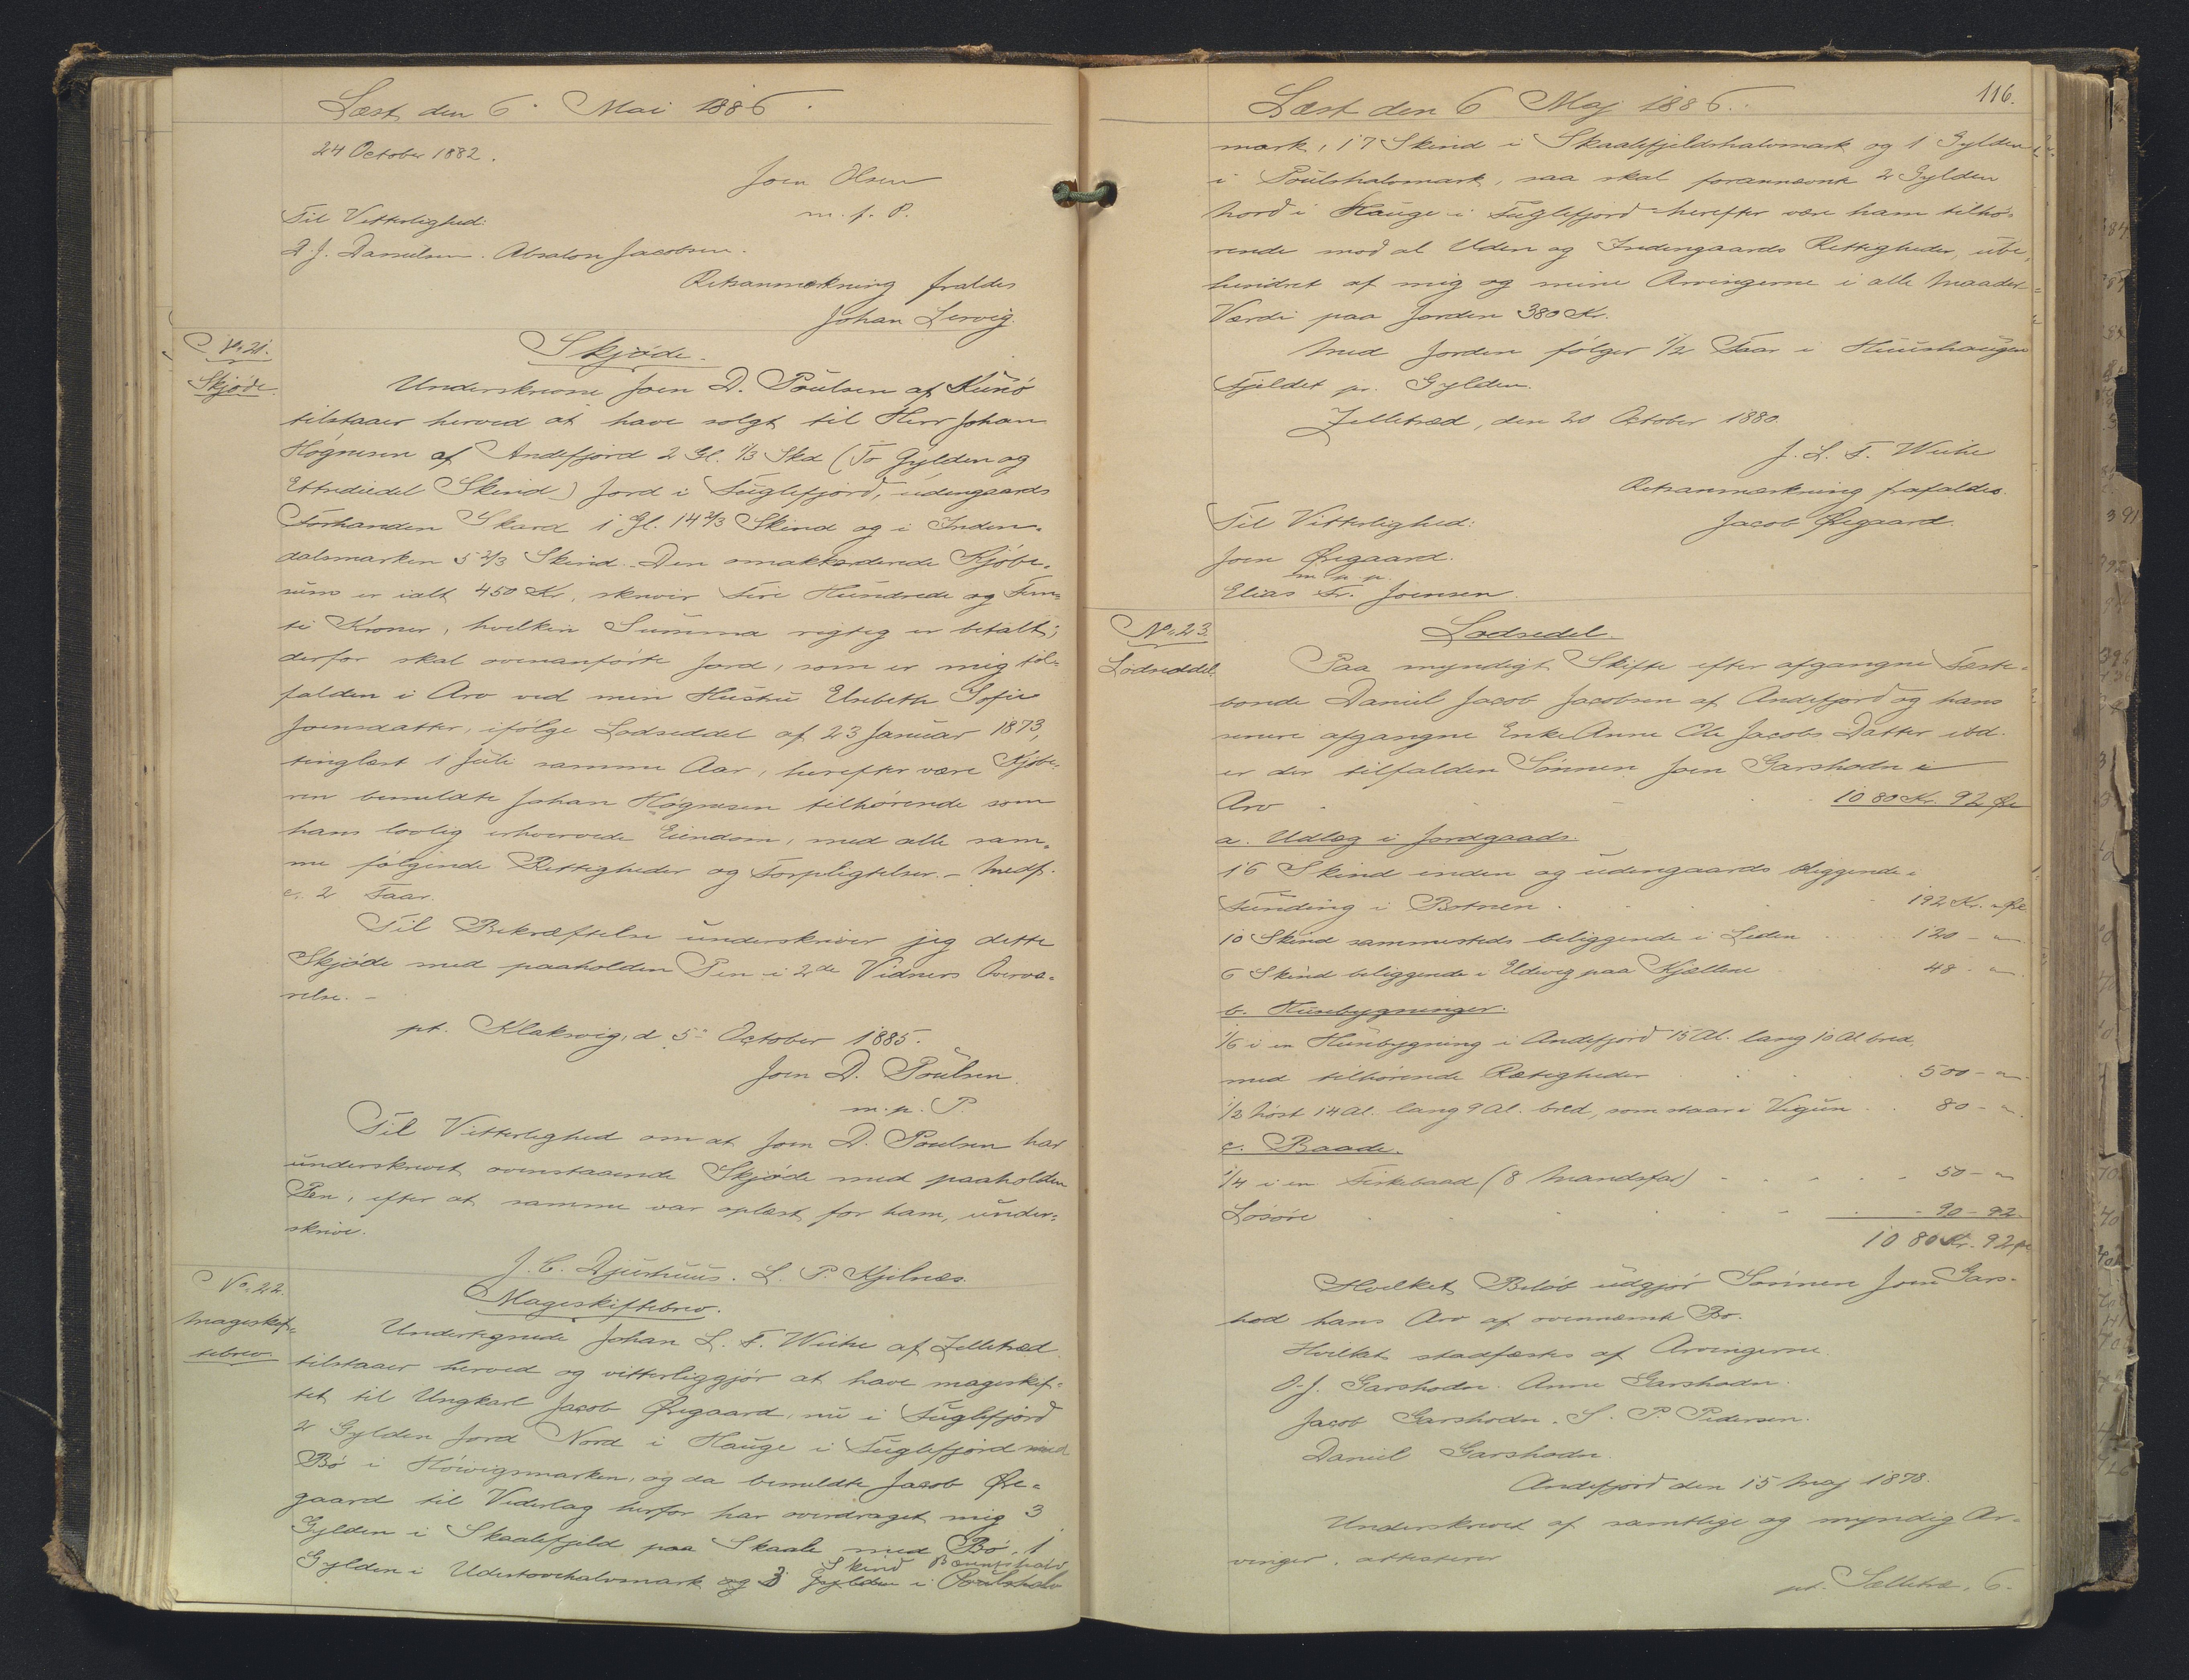 Læst den 6. Mai 1886.
24 October 1882.
Joen Olsen
m. f. P.
Til Vitterlighed:
D. J. Danielsen. Absalon Jacobsen.
Retsanmærkning fraldes
Johan Lervig.
No. 21.
Skjøde.
Skjøde.
Underskrevne Joen D. Poulsen af Kunø
tilstaaer herved at have solgt til Herr Johan
Høgnesen af Andefjord 2 Gl. 1/3 Skd (To Gylden og
Ettrediedel Skind) Jord i Fuglefjord, udengaards
Forhanden Skard 1 Gl. 14 2/3 Skind og i Inden-
dalsmarken 5 2/3 Skind. Den omakkorderede Kjøbe-
sum er ialt 450 Kr, skriver Fire Hundrede og Fem-
ti Kroner, hvilken Summa rigtig er betalt;
derfor skal ovenanførte Jord, som er mig til-
falden i Arv ved min Hustru Elsebeth Sofie
Joensdatter, ifølge Lodseddel af 23 Januar 1873,
tinglæst 1 Juli samme Aar, herefter være Kjøbe-
ren bemeldte Johan Høgnesen tilhørende som
hans lovlig erhvervede Eiendom, med alle sam-
me følgende Rettigheder og Forpligtelser. - Medf.
c. 2 Faar.
Til Bekræftelse underskriver jeg dette
Skjøde med paaholden Pen i 2de Vidners Overvæ-
relse. -
pt. Klaksvig, d 5. October 1885.
Joen D. Poulsen.
m. p. P.
Til Vitterlighed om at Joen D. Poulsen har
underskrevet ovenstaaende Skjøde med paaholden
Pen, efter at samme var oplæst for ham, under-
skrive.
J. C. Djurhuus. L. P. Kjilnæs.
No. 22.
Mageskif-
tebrev
Mageskiftebrev.
Undertegnede Johan L. F. Weihe af Zelletræd
tilstaaer herved og vitterliggjør at have mageskif-
tet til Ungkarl Jacob Øregaard, nu i Fuglefjord
2 Gylden Jord Nord i Hauge i Fuglefjord med
Bø i Høivigsmarken, og da bemeldte Jacob Øre-
gaard til Vederlag herfor har overdraget mig 3
Gylden i Skaalefjeld paa Skaale med Bø, 1
Skind Bønnes halv
Gylden i Uderstovehalvmark og 3 Gylden i Poulshalv
116.
Læst den 6 Maj 1886.
mark, 17 Skind i Skaalefjeldshalvmark og 1 Gylden
i Poulshalvmark, saa skal forannævnte 2 Gylden
Nord i Hauge i Fuglefjord herefter være ham tilhø-
rende mod al Uden og Indengaards Rettigheder, ube-
hindret af mig og mine Arvingerne i alle Maader.
Værdi paa Jorden 380 Kr.
Med Jorden følger 1/2 Faar i Huushaugen
Fjeldet pr. Gylden.
Zelletræd, den 20 October 1880.
J. L. F. Weihe
Retsanmærkning frafaldes.
Til Vitterlighed:
Jacob Øregaard.
Joen Øregaard.
m. p. p.
Elias Fr. Joensen.
No. 23.
Lodseddel.
Lodsedel.
Paa myndigt Skifte efter afgangne Fæste-
bonde Daniel Jacob Jacobsen af Andefjord og hans
senere afgangne Enke Anne Ole Jacobs Datter ibd.
er der tilfalden Sønnen Joen Garshodn i
Arv 1080 Kr. 92 Øre
a. Udlæg i Jordgaads.
16 Skind inden og udengaards beliggende i
Funding i Botnen 192 Kr. " Øre
10 Skind sammesteds beliggende i Leden 120 - "
6 Skind beliggende i Eldevig paa Kjellene 48 - "
b. Husebygninger.
1/6 i en Husebygning i Andefjord 15 Al. lang 10 Al bred,
med tilhørende Retigheder 500 - "
1/2 Nøst 14 Al. lang 9 Al. bred, som staar i Vigun 80 - "
c. Baade.
1/4 i en Fiskebaad (8 Mandsfar) 50 - "
Løsøre 90 - 92
1080 Kr. 92 Øre
Hvilket Beløb udgjør Sønnen Joen Gars-
hod hans Arv af ovennævnte Bo.
Hvilket stadfæstes af Arvingerne.
O. J. Garshodn. Anne Garshodn.
Jacob Garshodn. S. P. Pedersen.
Daniel Garshodn.
Andefjord den 15 Maj 1878.
Underskrevet af samtlige og myndig Ar-
vinger, attesterer
pt. Sælletræ, 6.